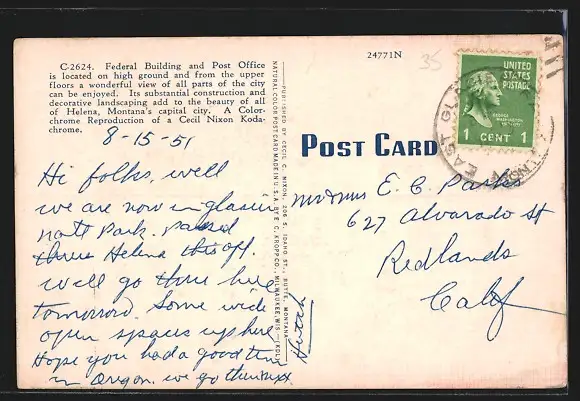 C-2624. Federal Building and Post Office
is located on high ground and from the upper
floors a wonderful view of all parts of the city
can be enjoyed. Its substantial construction and
decorative landscaping add to the beauty of all
of Helena, Montana's capital city. A Color-
chrome Reproduction of a Cecil Nixon Koda-
chrome.
8-15-51
Hi folks, well
we are now in glacier
natl Park. passed
threw Helena this aft.
we'll go thru here
tomorrow. Some wide
open spaces up here
Hope you had a good time
in Oregon. we go
PUBLISHED BY CECIL C. NIXON, 206 S. IDAHO ST., BUTTE, MONTANA
NATURAL COLOR POST CARD MADE IN U.S.A. BY E. C. KROPP CO., MILWAUKEE, WIS.
24771N
35
POST CARD
UNITED
STATES
POSTAGE
GEORGE
WASHINGTON
1 CENT 1
EAST GLACIER
mr & mrs E. C. Parks
627 Alvarado St
Redlands
Calif